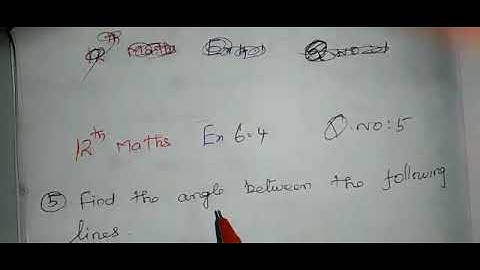 12th Maths Ex 6.4 Q.No:5
⑤ Find the angle between the following
lines.